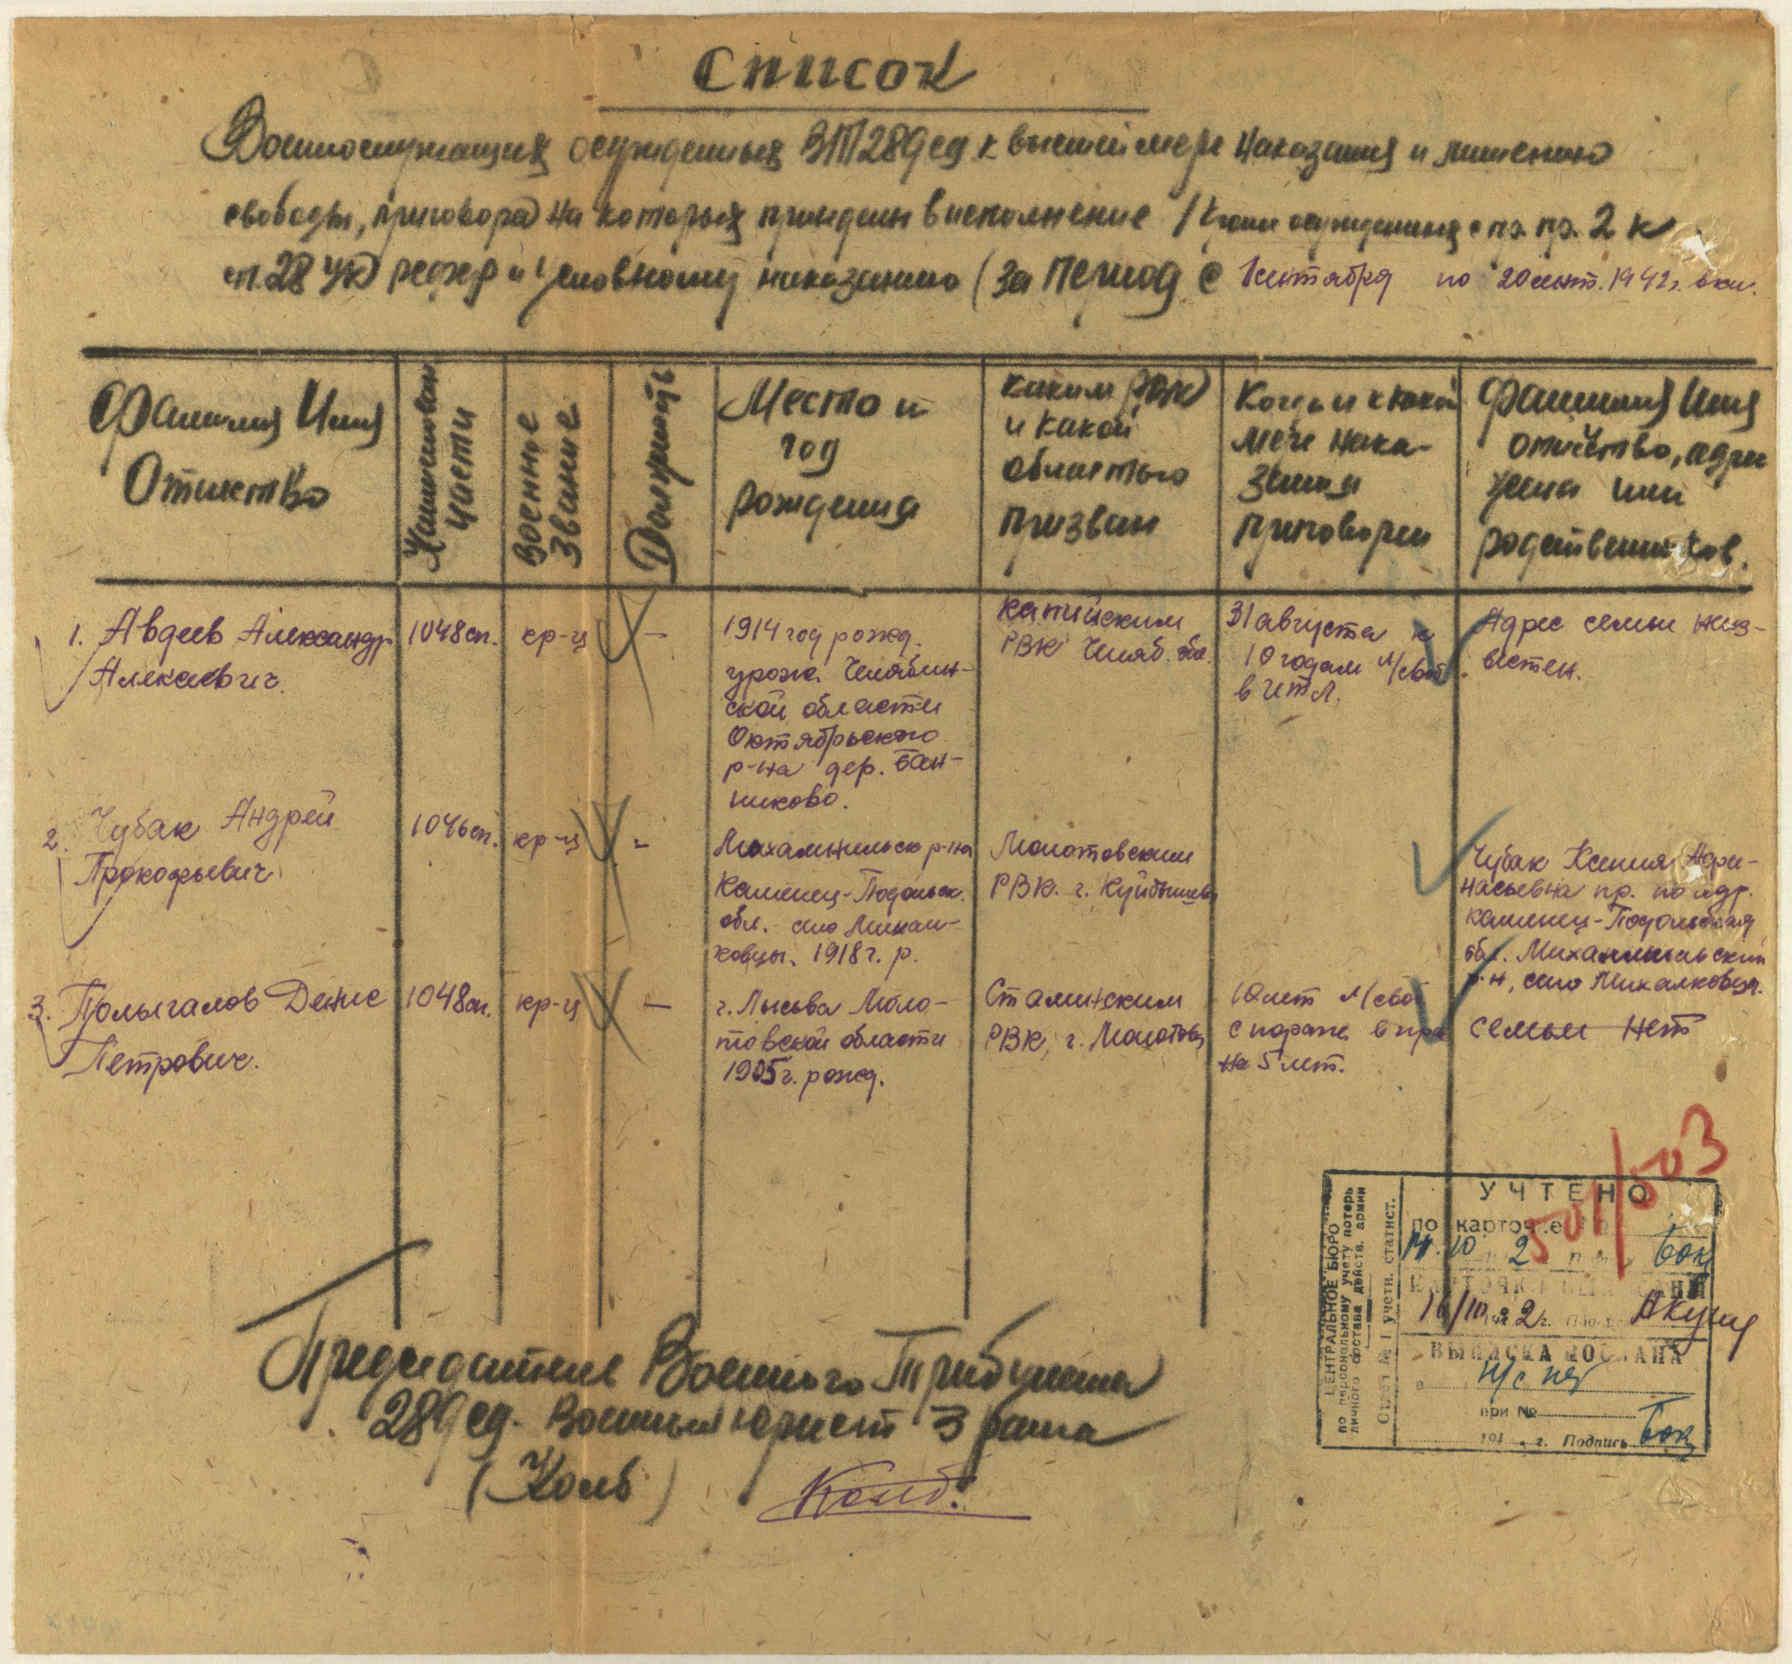 Список
Военнослужащих осужденных ВТ 289 сд к высшей мере наказания и лишению
свободы, приговора на которых приведен в исполнение / кроме осужденных с пр. пр. 2 к
ст. 28 УК РСФСР и условному наказанию (за период с 1 сентября по 20 сент. 1942 г. вкл.
Фамилия Имя
Отчество
Наименован
части
Военные
Звание
Должность
Место и
год
рождения
каким РВК
и какой
областью
призван
Когда и к какой
мере нака-
зания
приговорен
Фамилия Имя
отчество, адрес
жены или
родственников.
1. Авдеев Александр
Алексеевич.
1048 сп.
кр-ц
—
1914 год рожд.
урож. Челябин-
ской области
Октябрьского
р-на дер. Бан-
никово.
Капийским
РВК Челяб. обл.
31 августа к
10 годам л/своб.
в ИТЛ.
Адрес семьи неиз-
вестен.
2. Чубак Андрей
Прокофьевич
1046 сп.
кр-ц
-
Михампильско р-на
Каменец-Подольск.
обл. село Михал-
ковцы. 1918 г. р.
Молотовским
РВК. г. Куйбышева
Чубак Ксения
пр. по адр.
Каменец-Подольская
обл. Михампильский
р-н, село Михалковцы.
3. Полыгалов Денис
Петрович.
1048 сп.
кр-ц
—
г. Лысьва Моло-
товской области
1905 г. рожд.
Сталинским
РВК, г. Молотова
10 лет л/своб
с пораж. в пра
на 5 лет.
семьи нет
501/503
Председатель Военного Трибунала
289 сд. Военный юрист 3 ранга
(Колб)
Колб.
ЦЕНТРАЛЬНОЕ БЮРО
по персональному учету потерь
личного состава действ. армии
Отдел № 1 учетн. статист.
УЧТЕНО
по картотеке
14.10 2 Бок
16/10 1942 г.
ВЫПИСКА ПОСЛАНА
при №
194 г. Подпись Бок